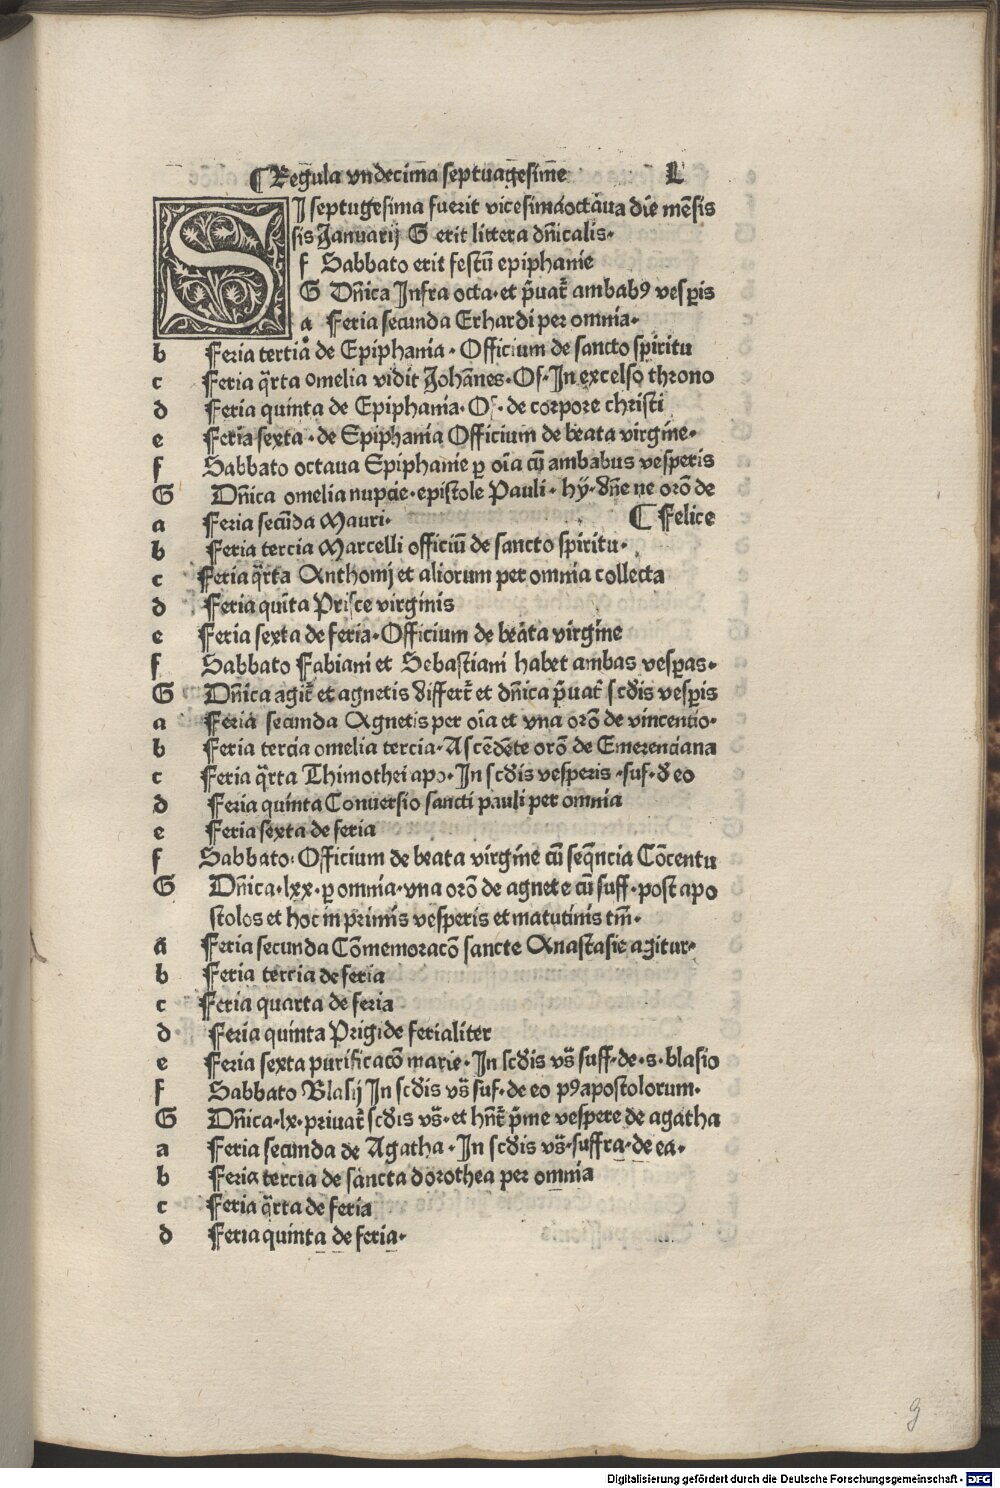 ¶ Regula vndecima septuagesime L
SI septugesima fuerit vicesimaoctaua die mẽsis
sis Januarij G erit littera dñicalis·
f Sabbato erit festũ epiphanie
G Dñica Infra octa· et p̃uat᷑ ambabꝰ vesꝑis
a Feria secunda Erhardi per omnia·
b Feria tertia de Epiphania · Officium de sancto spiritu
c Feria q̃rta omelia vidit Johãnes· Of· In excelso throno
d Feria quinta de Epiphania· Of· de corpore christi
e Feria sexta · de Epiphania Officium de beata virgine·
f Sabbato octaua Epiphanie ꝑ oĩa cũ ambabus vesperis
G Dñica omelia nupcie· epistole Pauli· hỹ· dñe ne orõ de
a Feria secũda Mauri· ¶ Felice
b Feria tercia Marcelli officiũ de sancto spiritu·
c Feria q̃rta Anthonij et aliorum per omnia collecta
d Feria quĩta Prisce virginis
e Feria sexta de feria· Officium de beãta virgine
f Sabbato Fabiani et Sebastiani habet ambas vesꝑas·
G Dñica agit᷑ et agnetis differt᷑ et dñica p̃uat᷑ scđis vesꝑis
a Feria secunda Agnetis per oĩa et vna orõ de vincentio·
b Feria tercia omelia tercia· Ascẽdẽte orõ de Emerenciana
c Feria q̃rta Thimothei apo· In scđis vesperis · suf· đ eo
d Feria quinta Conuersio sancti pauli per omnia
e Feria sexta de feria
f Sabbato· Officium de beata virgine cũ seq̃ncia Cõcentu
G Dñica· lxx· ꝑ omnia· vna orõ de agnete cũ suff· post apo
stolos et hoc in primis vesperis et matutinis tm̃·
a Feria secunda Cõmemoracõ sancte Anastasie agitur·
b Feria tercia de feria
c Feria quarta de feria
d Feria quinta Prigide ferialiter
e Feria sexta purificacõ marie· In scđis vs̃ suff· de· s· blasio
f Sabbato Blasij In scđis vs̃ suf· de eo pꝰ apostolorum·
G Dñica· lx· priuat᷑ scđis vs̃· et hñt᷑ p̃me vespere de agatha
a Feria secunda de Agatha · In scđis vs̃· suffra· de ea·
b Feria tercia de sancta dorothea per omnia
c Feria q̃rta de feria
d Feria quinta de feria·
g
Digitalisierung gefördert durch die Deutsche Forschungsgemeinschaft - DFG